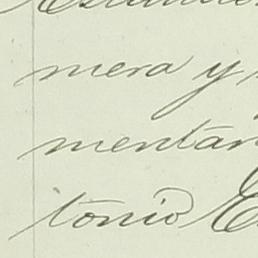 mera y
mentar
tonio